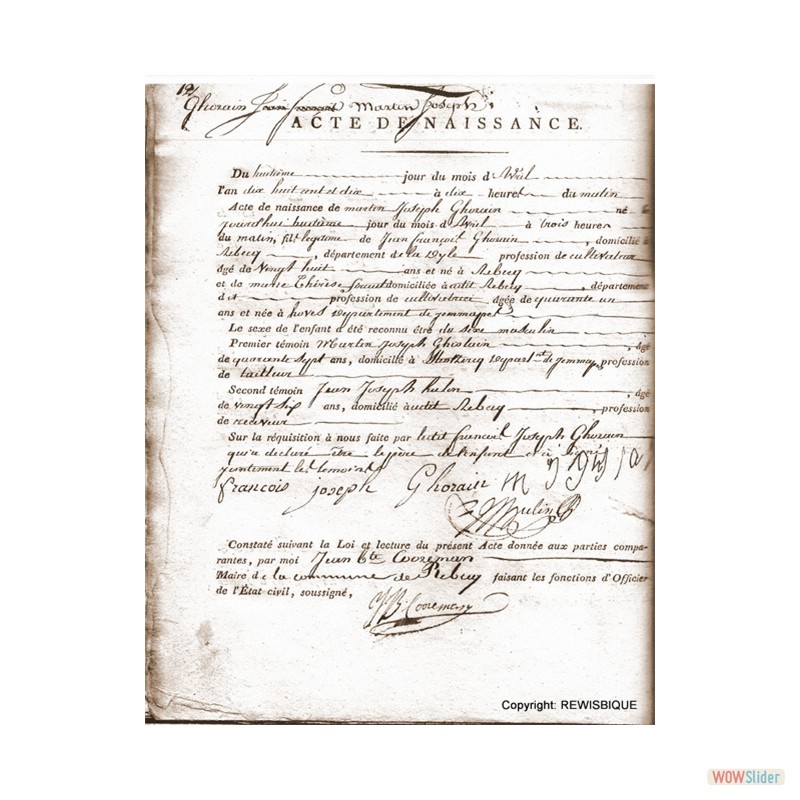 Ghorain Martin Joseph
ACTE DE NAISSANCE.
Du huitième jour du mois d'Avril
l'an dix huit cent et dix à dix heures du matin
Acte de naissance de martin Joseph Ghorain né
jourd'hui huitième jour du mois d'Avril à trois heures
du matin, fils legitime de Jean françois Ghorain, domicilié à
Rebecq, département de la Dyle profession de cultivateur
âgé de vingt huit ans et né à Rebecq
et de marie Thérèse domiciliée audit Rebecq, département
d profession de cultivatrice, âgée de quarante un
ans et née à hoves Departement de jemmappes
Le sexe de l'enfant a été reconnu être du sexe masculin
Premier témoin Martin Joseph Ghislain, âgé
de quarante sept ans, domicilié à Depart.nt de jemmap, profession
de tailleur
Second témoin Jean Joseph hulin, âgé
de vingt six ans, domicilié audit Rebecq, profession
de receveur
Sur la réquisition à nous faite par ledit francois Joseph Ghorain
qui a declaré être le père de l'enfant et a signé
les temoins
francois joseph Ghorain
Hulin
Constaté suivant la Loi et lecture du présent Acte donnée aux parties compa-
rantes, par moi Jean Bte Cooreman
Maire de la commune de Rebecq faisant les fonctions d'Officier
de l'État civil, soussigné,
JB Cooreman
Copyright: REWISBIQUE
WOWSlider